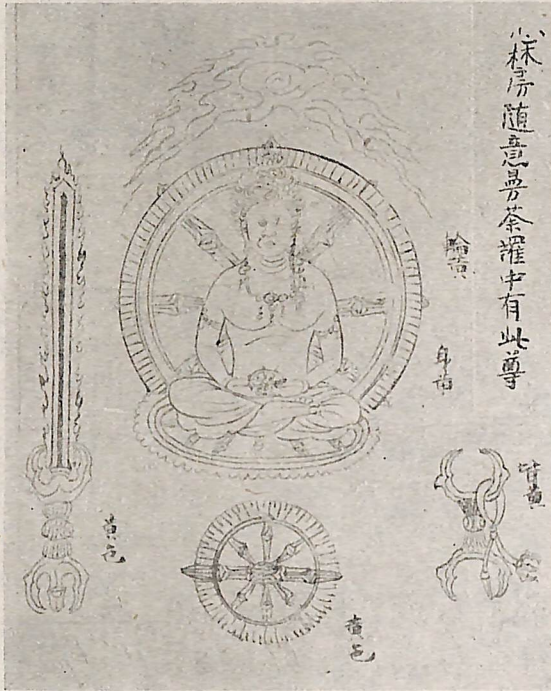 林房随意曼荼羅中有此尊
輪黄
身
皆黄
黄色
黄色